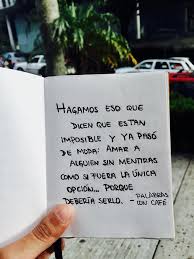 HAGAMOS ESO QUE
DICEN QUE ESTAN
IMPOSIBLE Y YA PASÓ
DE MODA: AMAR A
ALGUIEN SIN MENTIRAS
COMO SI FUERA LA ÚNICA
OPCIÓN... PORQUE
DEBERÍA SERLO. - PALABRAS
CON CAFÉ